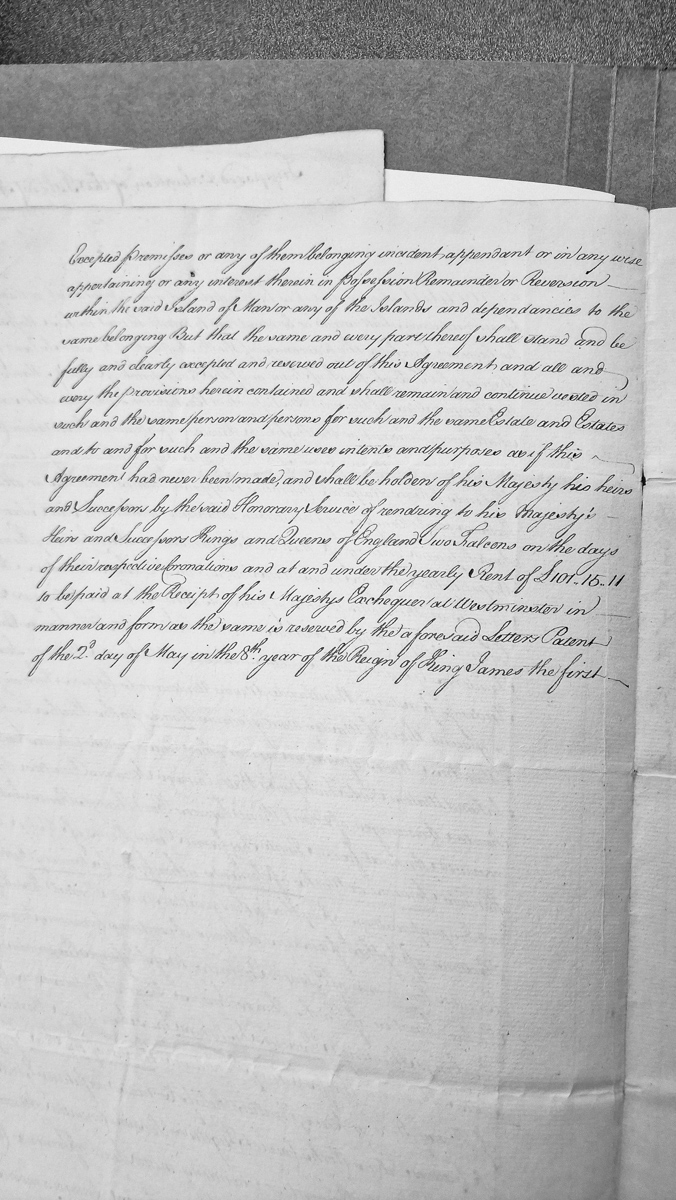 Excepted Premisses or any of them belonging incident appendant or in any wise
appertaining or any interest therein in possession Remainder or Reversion
within the said Island of Man or any of the Islands and dependancies to the
same belonging But that the same and every part thereof shall stand and be
fully and clearly excepted and reserved out of this Agreement and all and
every the provisions herein contained and shall remain and continue vested in
such and the same person and persons for such and the same Estate and Estates
and to and for such and the same uses intents and purposes as if this
Agreement had never been made, and shall be holden of his Majesty his heirs
and Successors by the said Honorary Service of rendring to his Majesty's
Heirs and Successors Kings and Queens of England Two Falcons on the days
of their respective Coronations and at and under the yearly Rent of £101..15..11
to be paid at the Receipt of his Majestys Exchequer at Westminster in
manner and form as the same is reserved by the aforesaid Letters Patent
of the 2d. day of May in the 8th. year of the Reign of King James the first